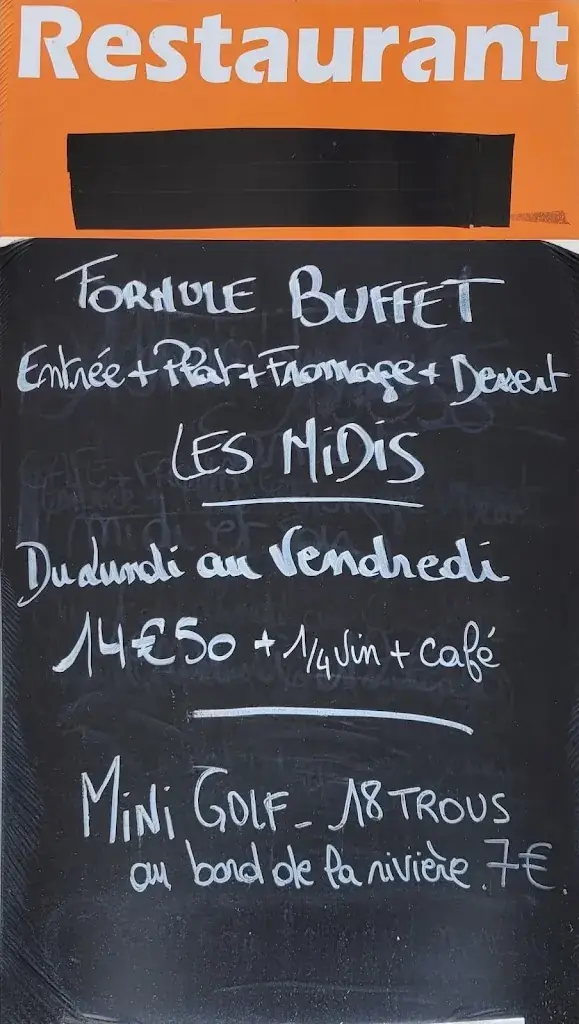 Restaurant
FORMULE BUFFET
Entrée + Plat + Fromage + Dessert
LES MIDIS
Du Lundi au Vendredi
14€50 + 1/4 vin + café
MINI GOLF - 18 TROUS
au bord de la rivière. 7€.